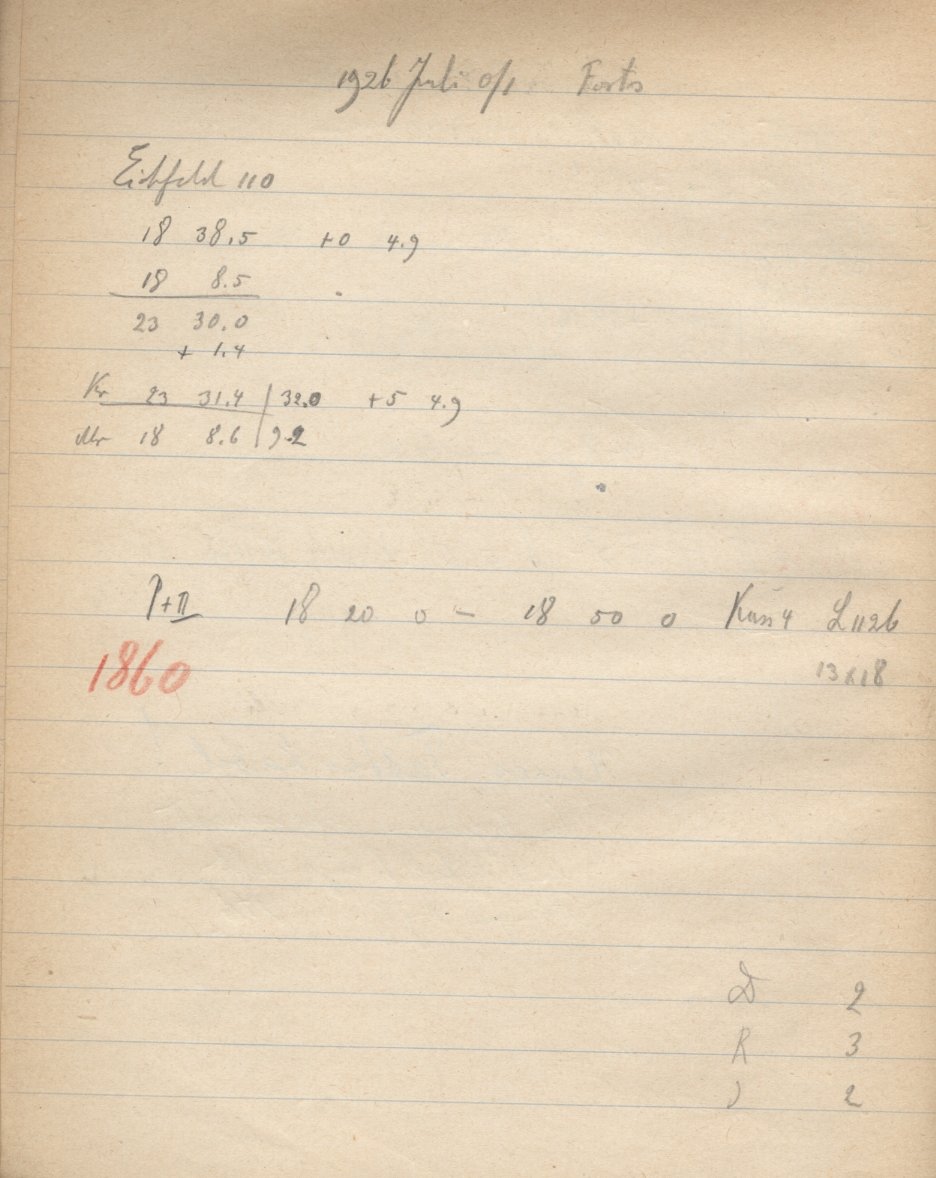 1926 Juli 0/1 Forts
Eichfeld 110
18 38.5 +0 4.9
18 8.5
23 30.0
+ 1.4
Kr 23 31.4 | 32.0 +5 4.9
Mr 18 8.6 | 9.2
P+II 18 20 0 – 18 50 0 Kass 4 L 1126
1860
13x18
D 2
R 3
) 2